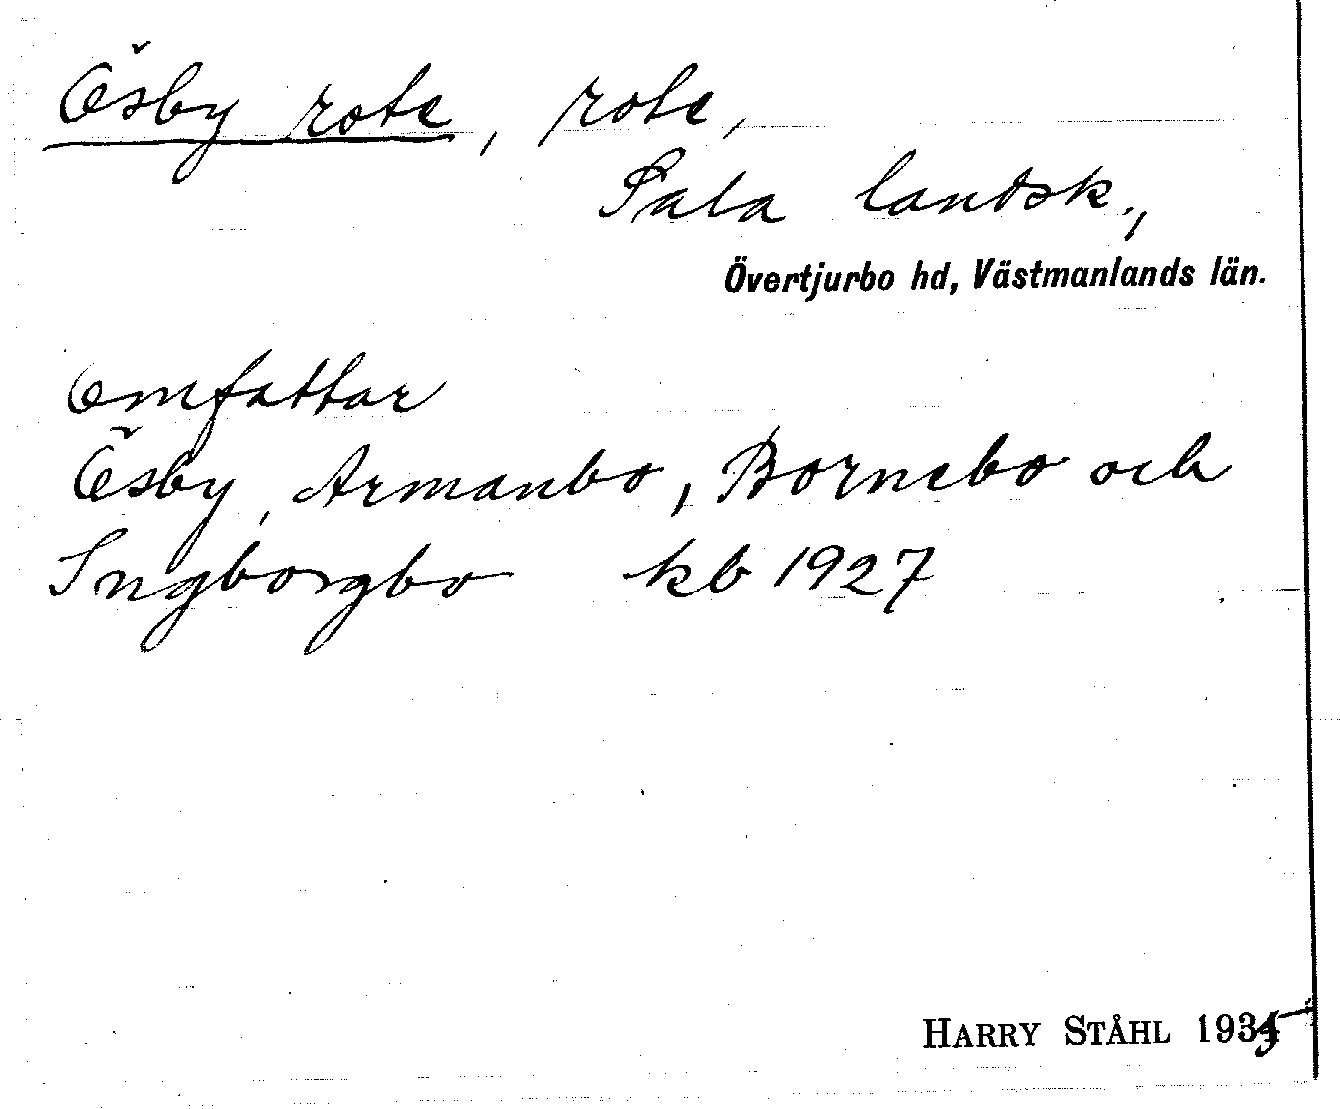 Ösby rote, rote,
Sala landsk.,
Övertjurbo hd, Västmanlands län.
Omfattar
Ösby, Armanbo, Bornebo och
Ingborgbo kb 1927
HARRY STÅHL 1935